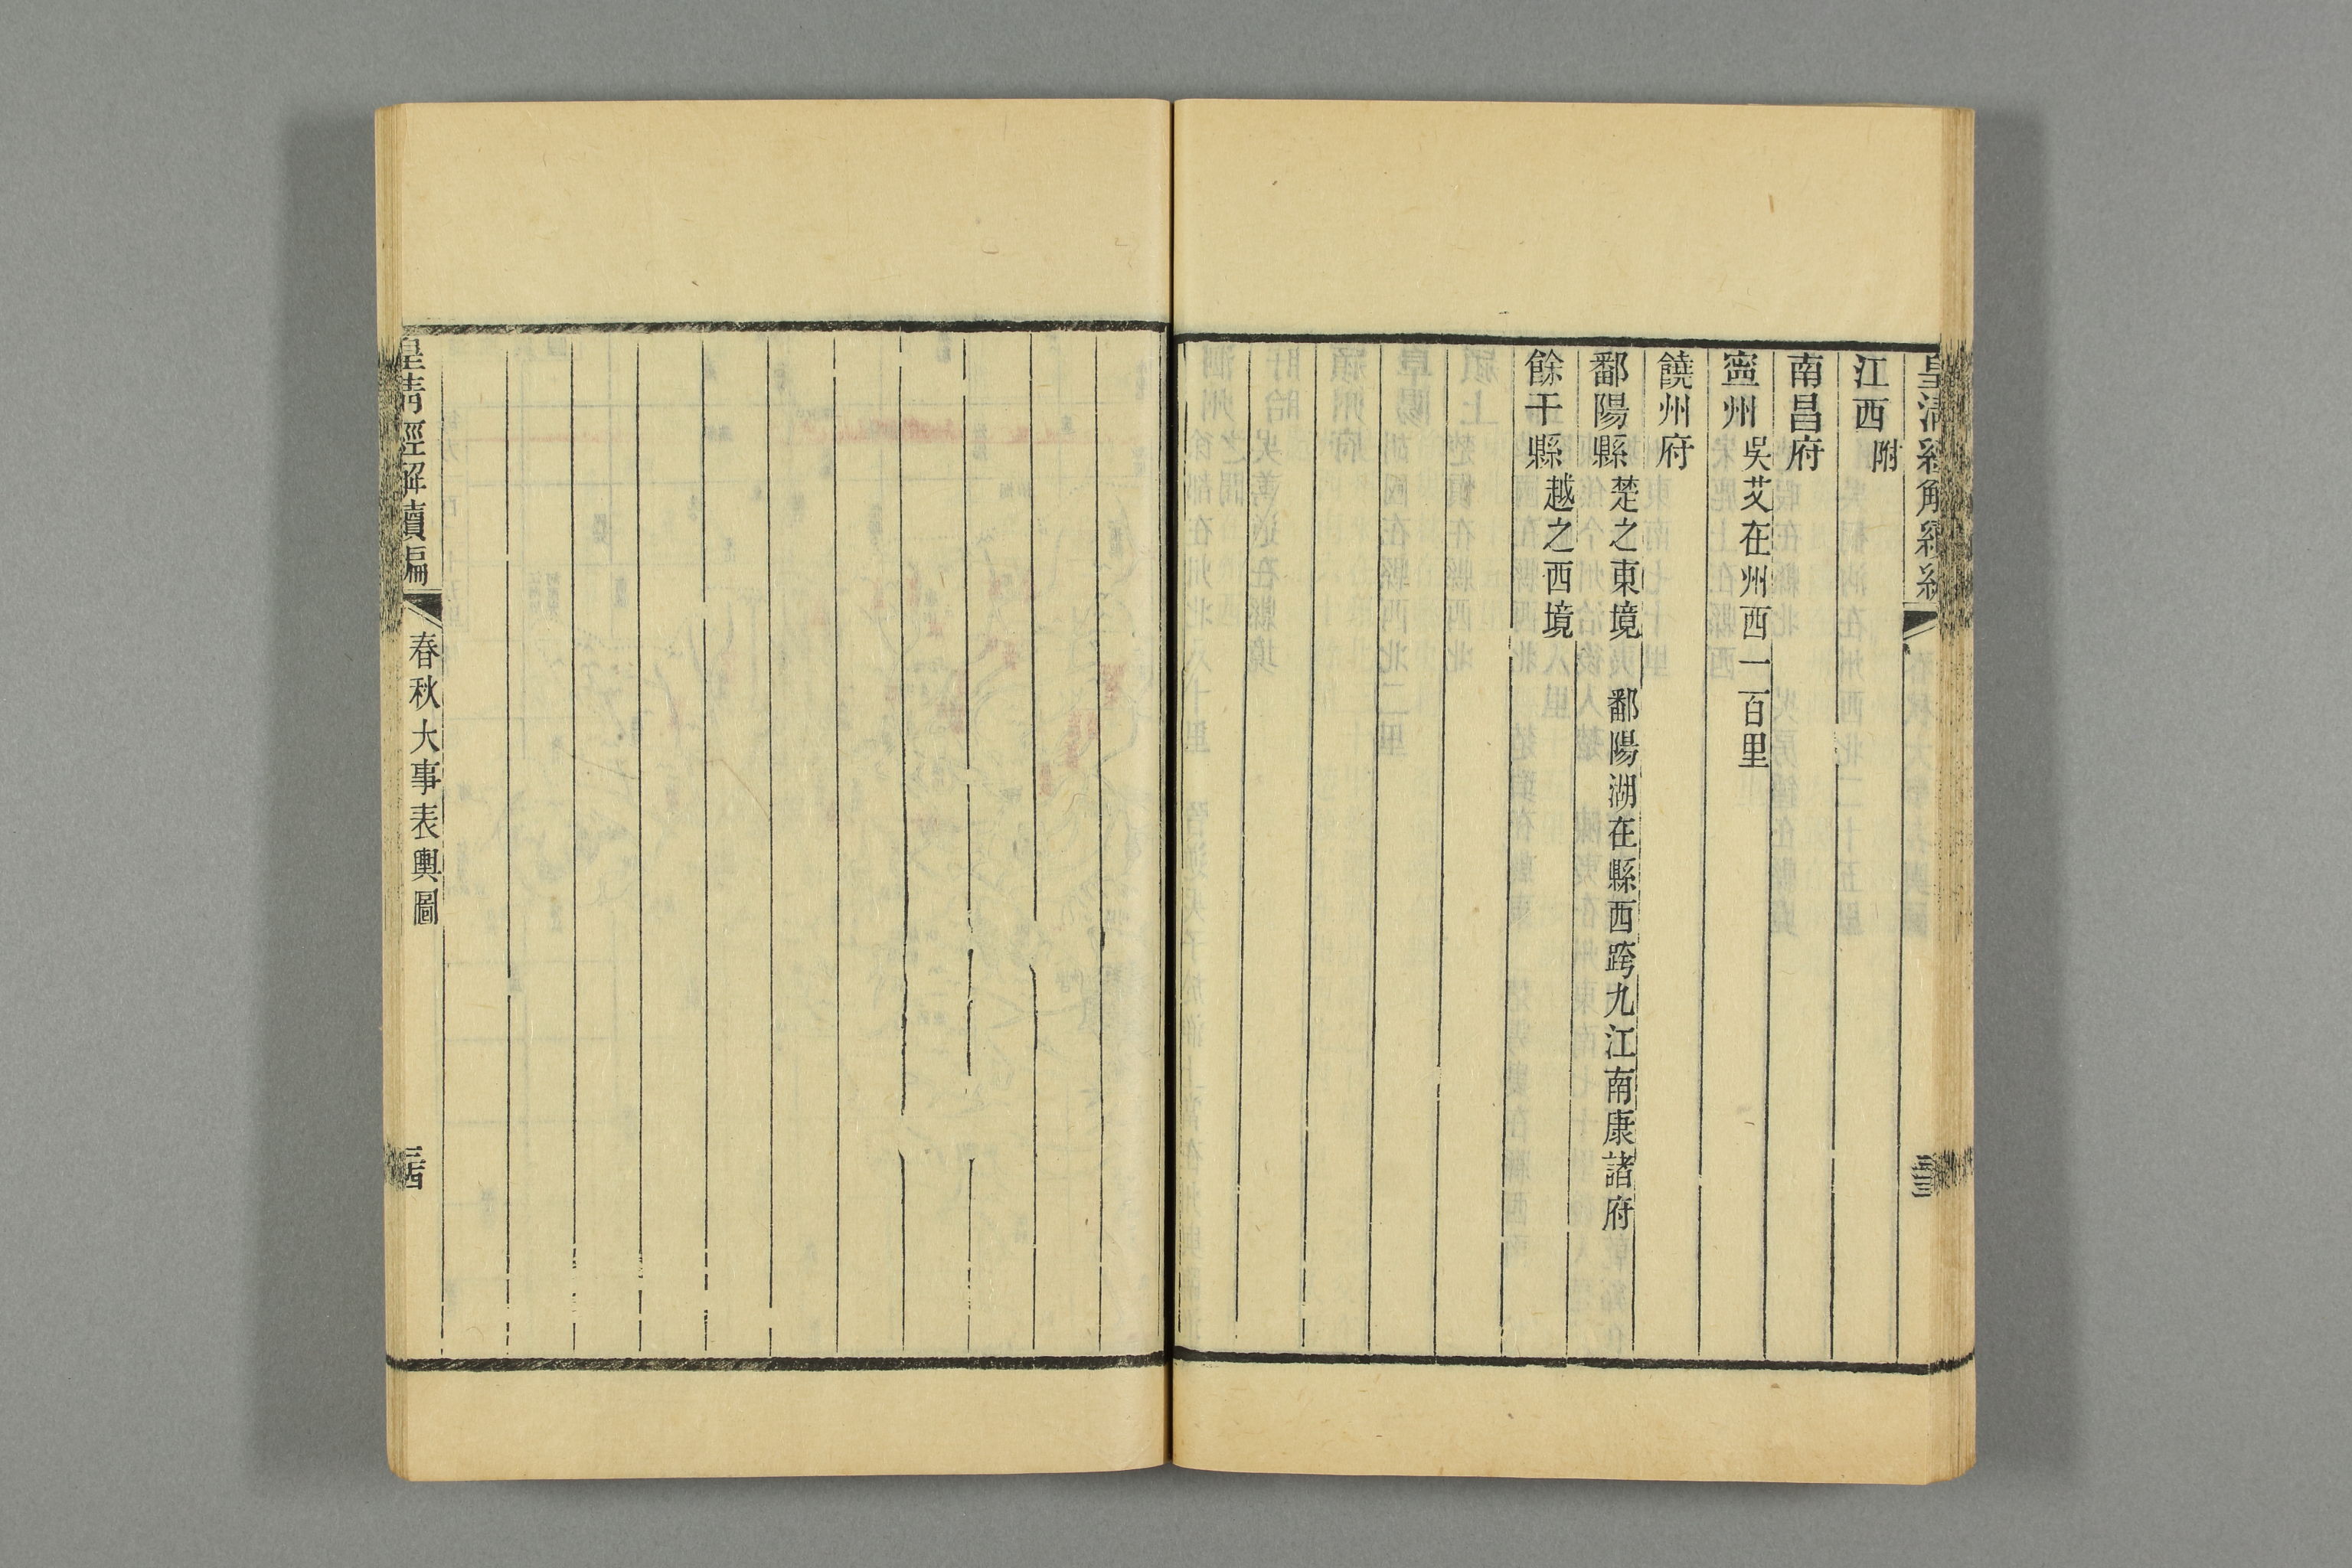 皇清經解續編
江西附
南昌府
寍州 吳艾在州西一百里
饒州府
鄱陽縣 楚之東境 鄱陽湖在縣西跨九江南康諸府
餘干縣 越之西境
皇清經解續編 春秋大事表輿圖